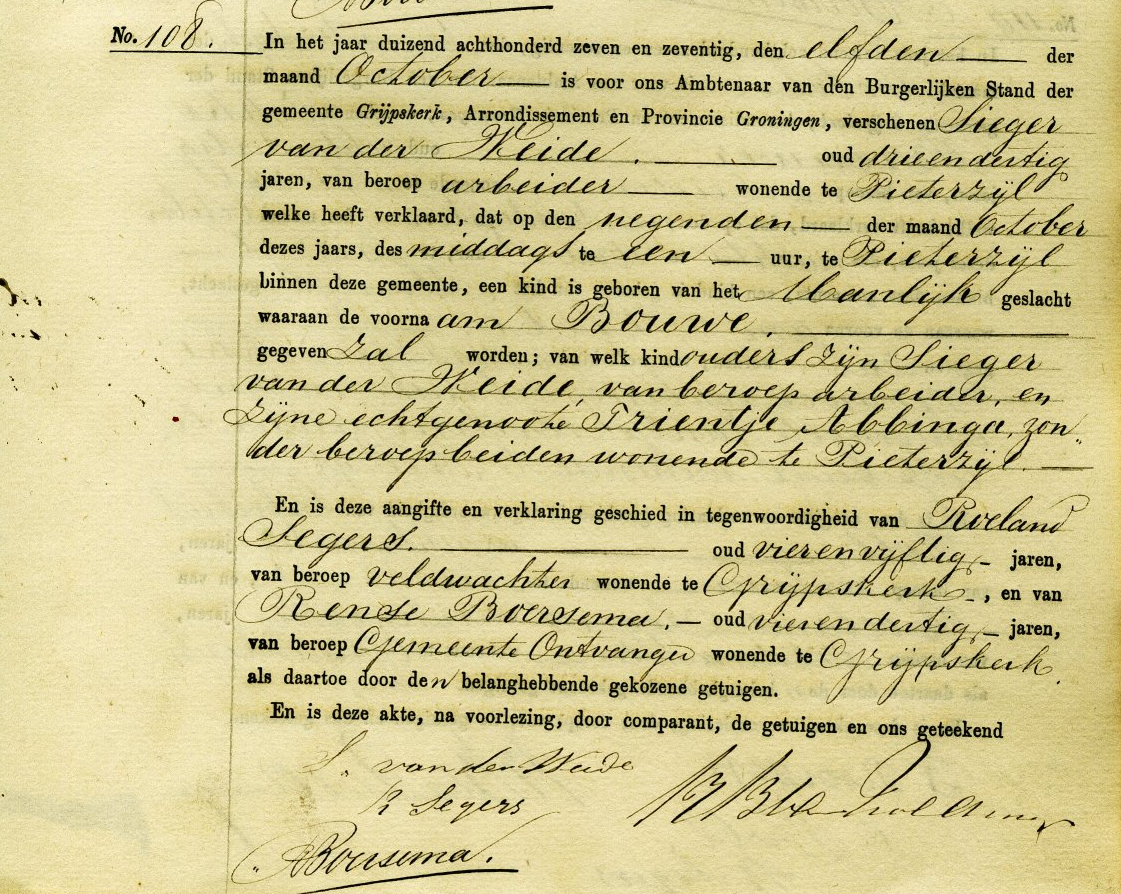 No. 108.
In het jaar duizend achthonderd zeven en zeventig, den elfden der
maand October is voor ons Ambtenaar van den Burgerlijken Stand der
gemeente Grijpskerk, Arrondissement en Provincie Groningen, verschenen Sieger
van der Weide. oud drieendertig
jaren, van beroep arbeider wonende te Pieterzijl
welke heeft verklaard, dat op den negenden der maand October
dezes jaars, des middags te een uur, te Pieterzijl
binnen deze gemeente, een kind is geboren van het Manlijk geslacht
waaraan de voornaam Bouwe.
gegeven zal worden; van welk kind ouders zijn Sieger
van der Weide, van beroep arbeider, en
zijne echtgenoote Trientje Abbinga, zon„
der beroep beiden wonende te Pieterzijl.
En is deze aangifte en verklaring geschied in tegenwoordigheid van Roeland
Segers. oud vierenvijftig jaren,
van beroep veldwachter wonende te Grijpskerk, en van
Rense Boersema. oud vierendertig jaren,
van beroep Gemeente Ontvanger wonende te Grijpskerk.
als daartoe door den belanghebbende gekozene getuigen.
En is deze akte, na voorlezing, door comparant, de getuigen en ons geteekend
S. van der Weide
R Segers
Boersema.